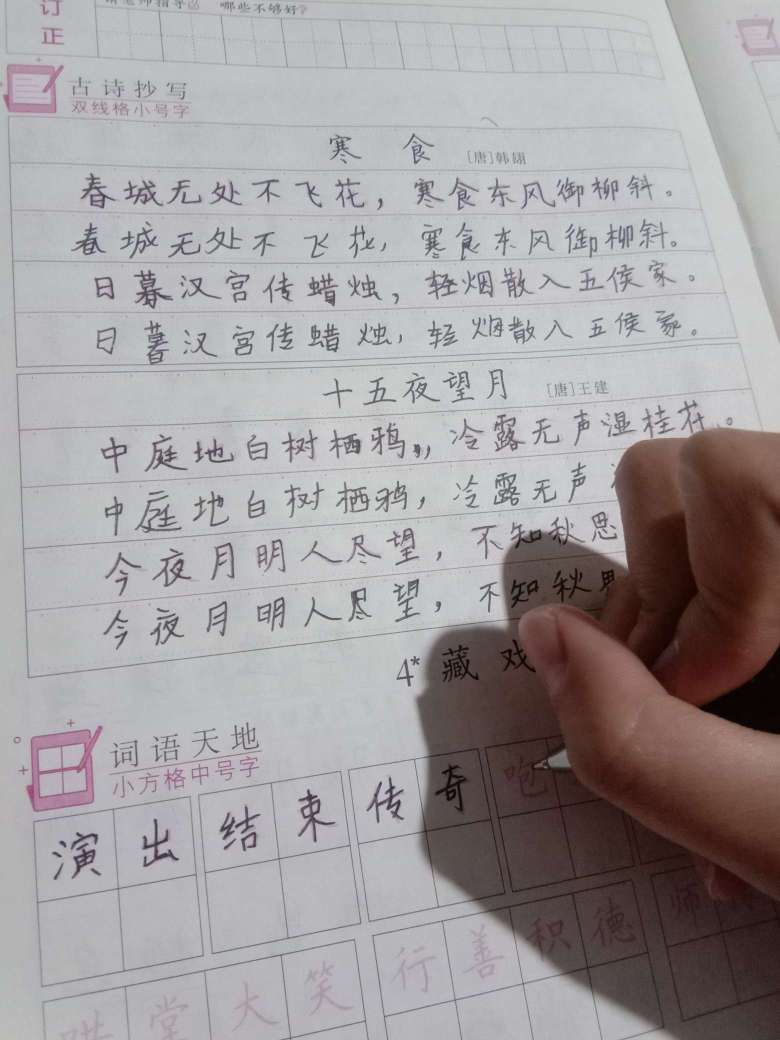 订
正
哪些不够好？
古诗抄写
双线格小号字
寒食 [唐]韩翃
春城无处不飞花，寒食东风御柳斜。
春城无处不飞花，寒食东风御柳斜。
日暮汉宫传蜡烛，轻烟散入五侯家。
日暮汉宫传蜡烛，轻烟散入五侯家。
十五夜望月 [唐]王建
中庭地白树栖鸦，冷露无声湿桂花。
中庭地白树栖鸦，冷露无声
今夜月明人尽望，不知秋思
今夜月明人尽望，不知秋思
4* 藏戏
词语天地
小方格中号字
演出 结束 传奇 咆
哄堂大笑 行善积德 师